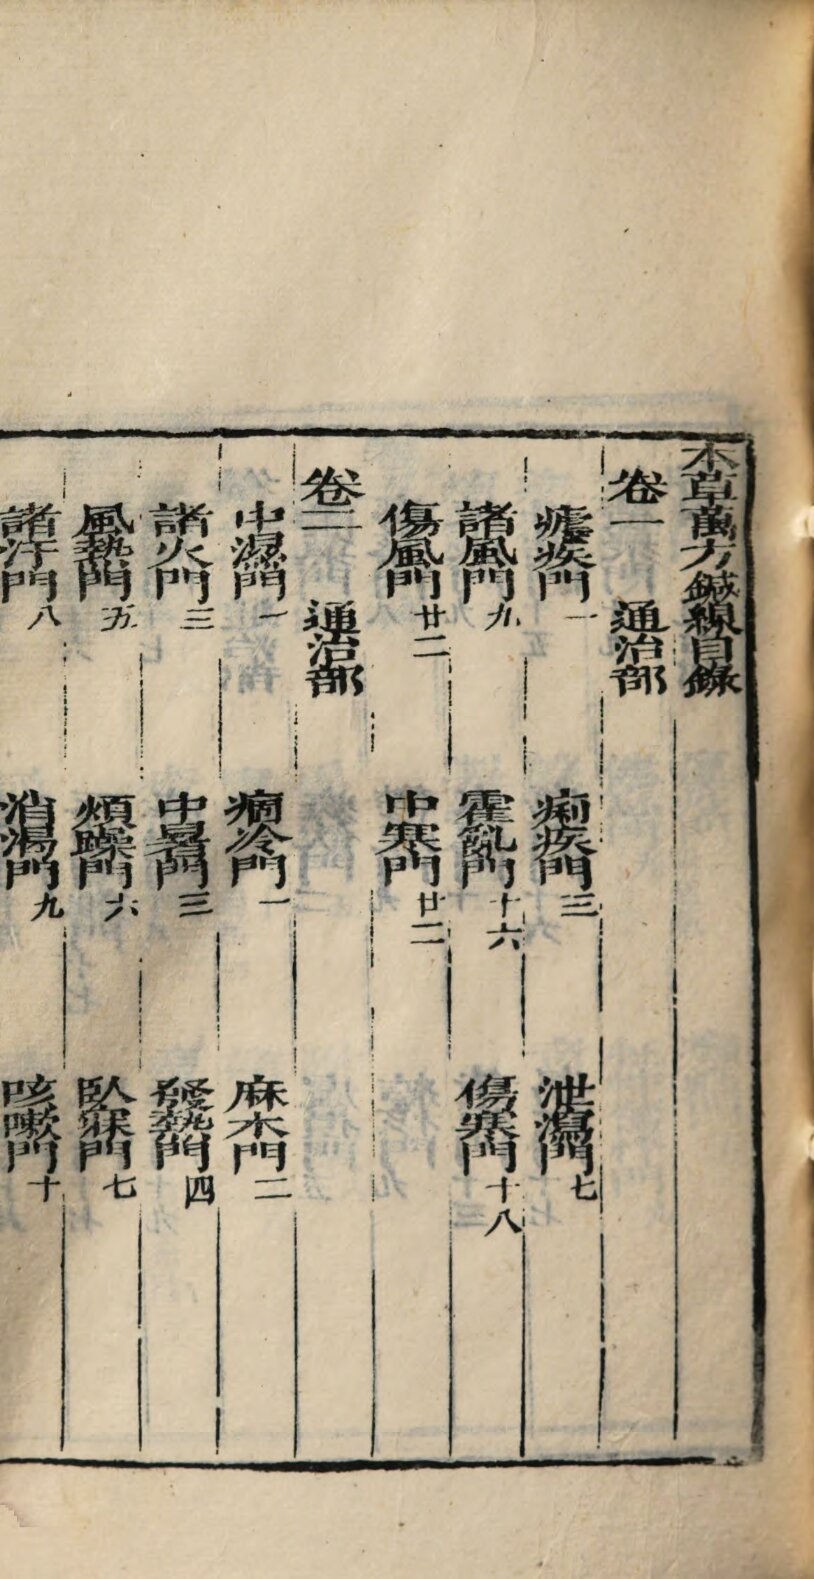 本草萬方鍼線目錄
卷一 通治部
瘧疾門一 痢疾門三 泄瀉門七
諸風門九 霍亂門十六 傷寒門十八
傷風門廿二 中寒門廿二
卷二 通治部
中濕門一 痼冷門一 麻木門二
諸火門三 中暑門三 發熱門四
風熱門五 煩躁門六 臥寐門七
諸汗門八 消渴門九 咳嗽門十